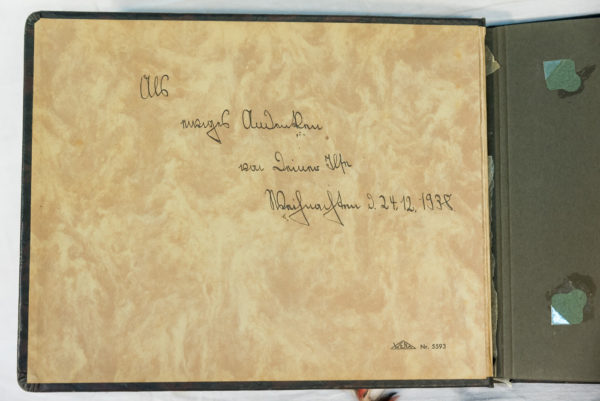 Als
ewiges Andenken
von Deiner Ilse
Weihnachten d. 24.12.1938
Nr. 5593